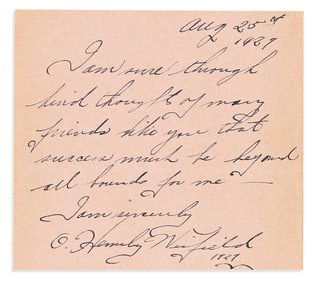 Aug 25th
1927
I am sure through
kind thought of many
friends like you that
success much be beyond
all bounds for me —
I am sincerely
O. Winfield
1927